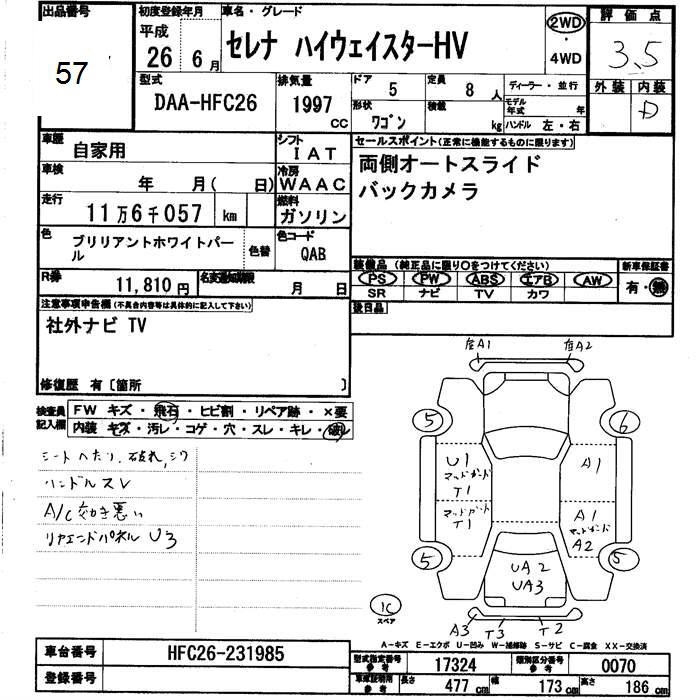 出品番号
57
初度登録年月
平成
26 6月
車名・グレード
セレナ ハイウェイスターHV
2WD
・
4WD
評価点
3.5
外装 内装
D
型式
DAA-HFC26
排気量
1997
CC
ドア
5
定員
8人
形状
ワゴン
積載
kg
ディーラー・並行
モデル年式 年
ハンドル 左・右
車歴
自家用
シフト
IAT
車検
年 月(日)
冷房
WAAC
走行
11万6千057 km
燃料
ガソリン
色
ブリリアントホワイトパール
色替
色コード
QAB
R券
11,810円
名変期限
月 日
セールスポイント(正常に機能するものに限ります)
両側オートスライド
バックカメラ
装備品(純正品に限り○をつけてください)
PS PW ABS エアB AW
SR ナビ TV カワ
新車保証書
有・無
後日品
注意事項申告欄(不具合内容等は具体的に記入して下さい)
社外ナビ TV
修復歴 有〔箇所 〕
検査員
記入欄
FW キズ・飛石・ヒビ割・リペア跡・×要
内装 キズ・汚レ・コゲ・穴・スレ・キレ・破レ
シートへたり、破れ、シワ
ハンドルスレ
A/C効き悪い
リヤエンドパネル U3
A1
A2
5
6
U1
マッドガード
T1
A1
マッドガード
T1
A1
マッドガード
A2
5
5
UA2
UA3
IC
スペア
A3 T3 T2
A-キズ E-エクボ U-凹み W-補修跡 S-サビ C-腐食 XX-交換済
車台番号
HFC26-231985
登録番号
型式指定番号
参考
17324
類別区分番号
参考
0070
車庫証明用
参考
長さ 477cm
幅 173cm
高さ 186cm